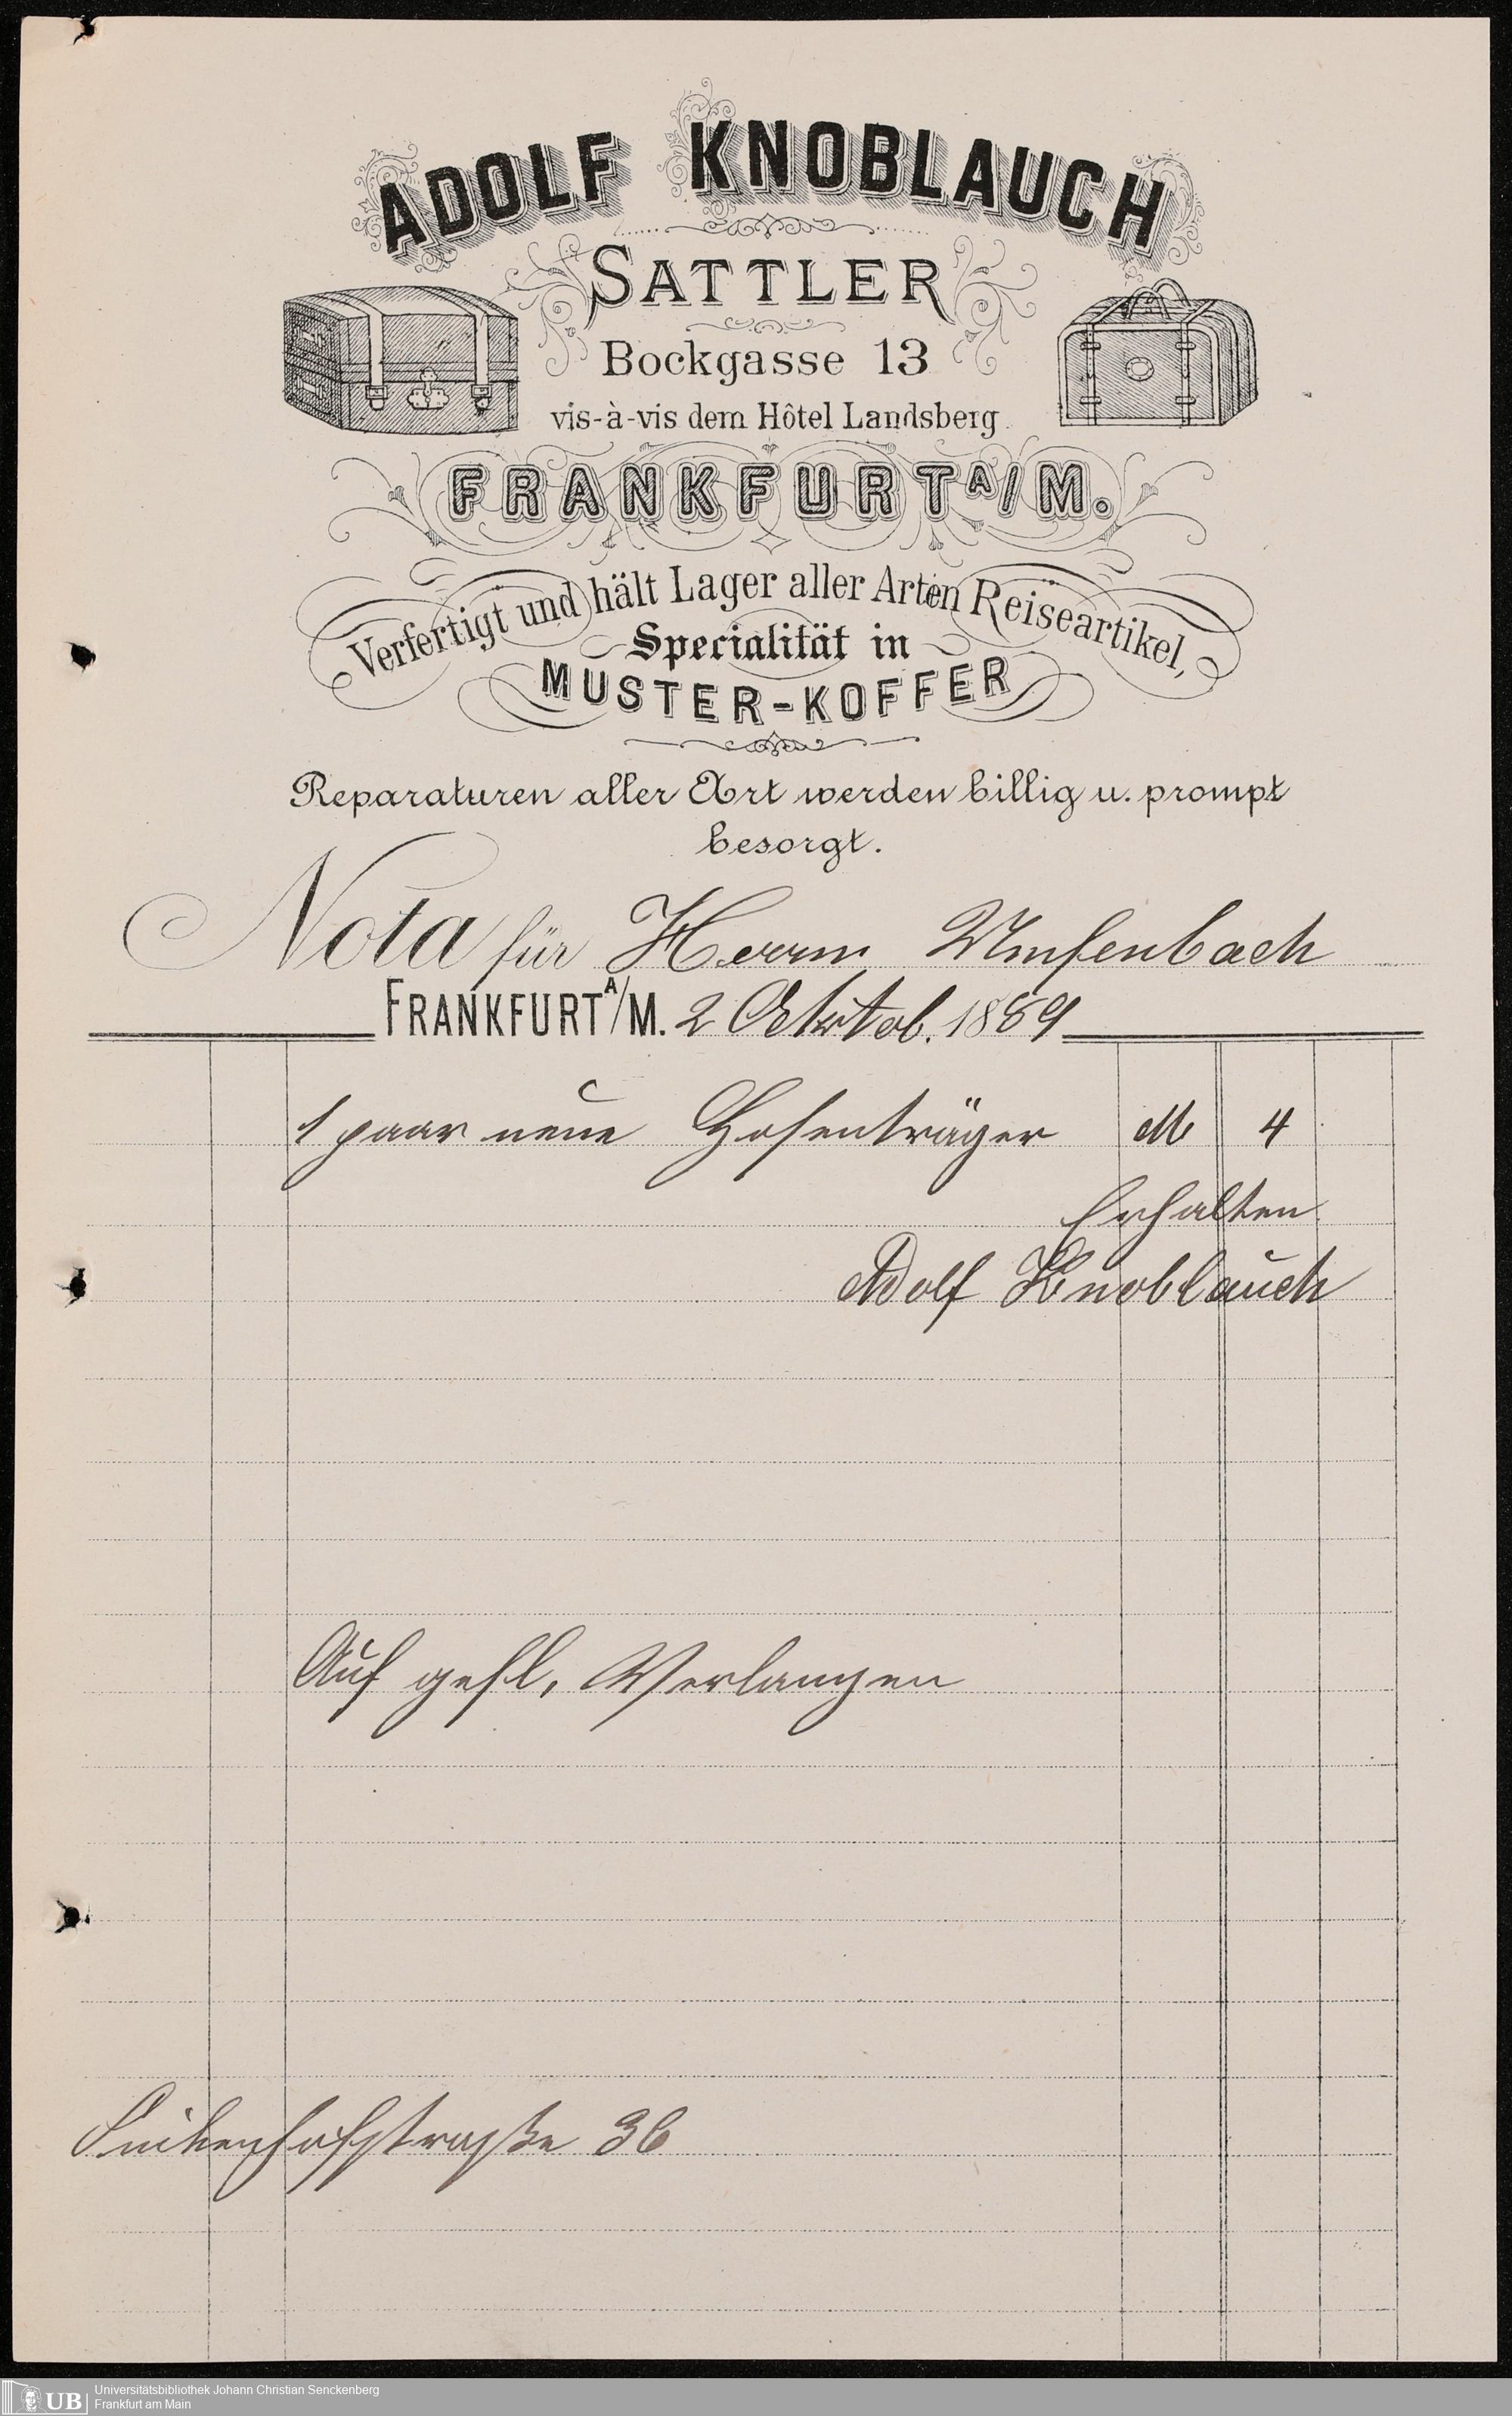 ADOLF KNOBLAUCH
SATTLER
Bockgasse 13
vis-à-vis dem Hôtel Landsberg.
FRANKFURT A/M.
Verfertigt und hält Lager aller Arten Reiseartikel,
Specialität in
MUSTER-KOFFER
Reparaturen aller Art werden billig u. prompt
besorgt.
Nota für Herrn
FRANKFURT A/M. 2 Oktob. 1889
1 paar neue Hosenträger M 4
Erhalten
Adolf Knoblauch
Auf gefl. Verlangen
36
UB
Universitätsbibliothek Johann Christian Senckenberg
Frankfurt am Main